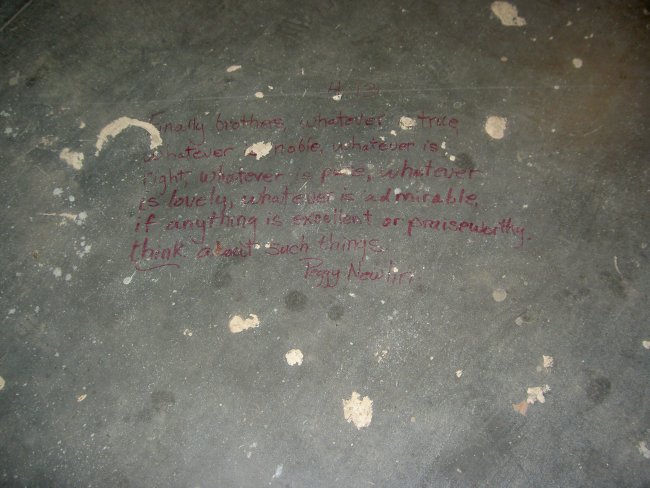 Finally brothers, whatever is true,
whatever is noble, whatever is
right, whatever is pure, whatever
is lovely, whatever is admirable,
if anything is excellent or praiseworthy.
think about such things.
Peggy Newlin